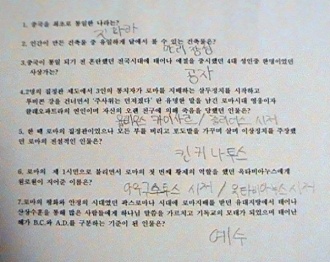 1. 중국을 최초로 통일한 나라는?
진나라
2. 인간이 만든 건축물 중 유일하게 달에서 볼 수 있는 건축물은?
만리장성
3. 중국이 통일 되기 전 혼란했던 전국시대에 태어나 예절을 중시했던 4대 성인중 한명이었던
사상가는?
공자
4. 2명의 집정관 제도에서 3인의 통치자가 로마를 지배하는 삼두정치를 시작하고
루비콘 강을 건너면서 '주사위는 던져졌다' 란 유명한 말을 남긴 로마시대 영웅이자
클레오파트라의 연인이며 자신의 오랜 친구에 의해 죽음을 당했던 인물은?
율리우스 카이사르 / 줄리어스 시저
5. 한 때 로마의 집정관이었으나 모든 부를 버리고 포도밭을 가꾸며 살며 이상정치를 주장했
던 로마의 전설적인 인물은?
킨키나투스
6. 로마의 제 1시민으로 불리면서 로마의 첫 번째 황제의 역할을 했던 옥타비아누스에게
원로원이 지어준 이름은?
아우구스투스 시저 / 옥타비아누스 시저
7. 로마의 평화와 안정의 시대였던 팍스로마나 시대에 로마의 지배를 받던 유대지방에서 태어나
산상수훈을 통해 많은 사람들에게 하나님 말씀을 가르치고 기독교의 모태가 되었으며 태어난
해가 B.C와 A.D를 구분하는 기준이 된 인물은?
예수